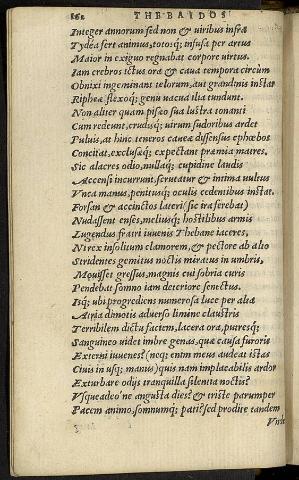 162 THEBAIDOS
Integer annorum sed non & uiribus infra
Tydea fert animus, totosq; infusa per artus
Maior in exiguo regnabat corpore uirtus.
Iam crebros ictus ora & caua tempora circùm
Obnixi ingeminant telorum, aut grandinis instar
Ripheæ flexoq; genu uacua ilia tundunt.
Non aliter quam pisæo sua lustra tonanti
Cum redeunt, crudisq; uirum sudoribus ardet
Puluis, at hinc teneros caueæ dissensus ephœbos
Concitat, exclusæq; expectant præmia matres.
Sic alacres odio, nullaq; cupidine laudis
Accensi incurrunt, scrutatur & intima uultus
Vnca manus, penitusq; oculis cedentibus instat.
Forsan & accinctos lateri (sic ira ferebat)
Nudassent enses, meliusq; hostilibus armis
Lugendus fratri iuuenis Thebane iaceres,
Ni rex insolitum clamorem, & pectore ab alto
Stridentes gemitus noctis miratus in umbris,
Mouisset gressus, magnis cui sobria curis
Pendebat somno iam deteriore senectus.
Isq; ubi progrediens numerosa luce per alta
Atria dimotis aduerso limine claustris
Terribilem dictu faciem, lacera ora, putresq;
Sanguineo uidet imbre genas, quæ causa furoris
Externi iuuenes? (neq; enim meus audeat istas
Ciuis in usq; manus) quis nam implacabilis ardor
Exturbare odijs tranquilla silentia noctis?
Vsque adeo'ne angusta dies? & triste parumper
Pacem animo, somnumq; pati? sed prodite tandem
Vnde